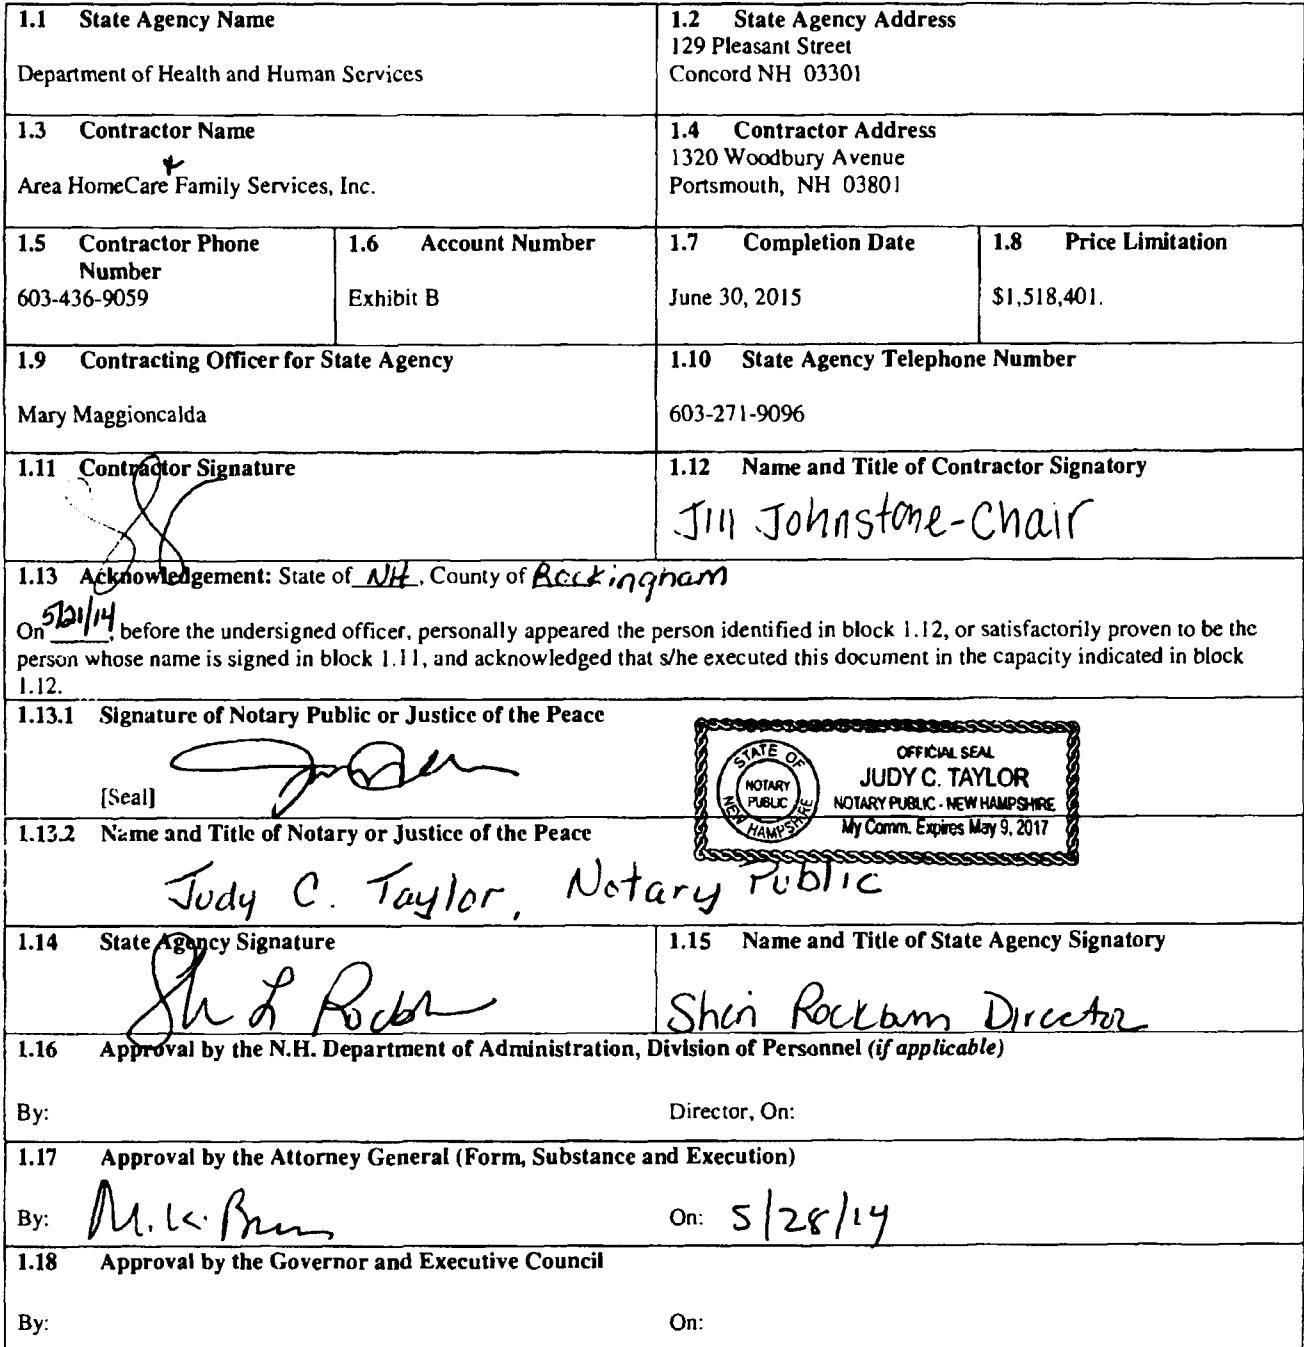 1.1 State Agency Name
Department of Health and Human Services
1.2 State Agency Address
129 Pleasant Street
Concord NH 03301
1.3 Contractor Name
&
Area HomeCare Family Services, Inc.
1.4 Contractor Address
1320 Woodbury Avenue
Portsmouth, NH 03801
1.5 Contractor Phone
Number
603-436-9059
1.6 Account Number
Exhibit B
1.7 Completion Date
June 30, 2015
1.8 Price Limitation
$1,518,401.
1.9 Contracting Officer for State Agency
Mary Maggioncalda
1.10 State Agency Telephone Number
603-271-9096
1.11 Contractor Signature
1.12 Name and Title of Contractor Signatory
Jill Johnstone-Chair
1.13 Acknowledgement: State of NH, County of Rockingham
On 5/21/14, before the undersigned officer, personally appeared the person identified in block 1.12, or satisfactorily proven to be the
person whose name is signed in block 1.11, and acknowledged that s/he executed this document in the capacity indicated in block
1.12.
1.13.1 Signature of Notary Public or Justice of the Peace
[Seal]
STATE OF NEW HAMPSHIRE
NOTARY
PUBLIC
OFFICIAL SEAL
JUDY C. TAYLOR
NOTARY PUBLIC - NEW HAMPSHIRE
My Comm. Expires May 9, 2017
1.13.2 Name and Title of Notary or Justice of the Peace
Judy C. Taylor, Notary Public
1.14 State Agency Signature
1.15 Name and Title of State Agency Signatory
Sheri Rockburn Director
1.16 Approval by the N.H. Department of Administration, Division of Personnel (if applicable)
By:
Director, On:
1.17 Approval by the Attorney General (Form, Substance and Execution)
By: M. K. Brown
On: 5/28/14
1.18 Approval by the Governor and Executive Council
By:
On: